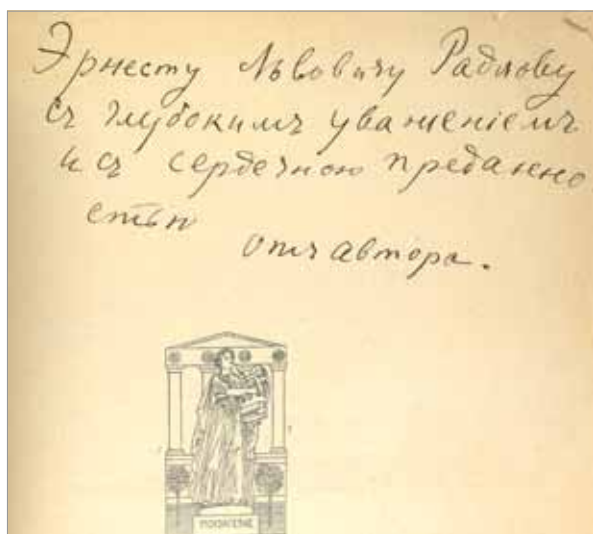 Эрнесту Львовичу Радлову
съ глубокимъ уваженіемъ
и съ сердечною преданно
стью
отъ автора.